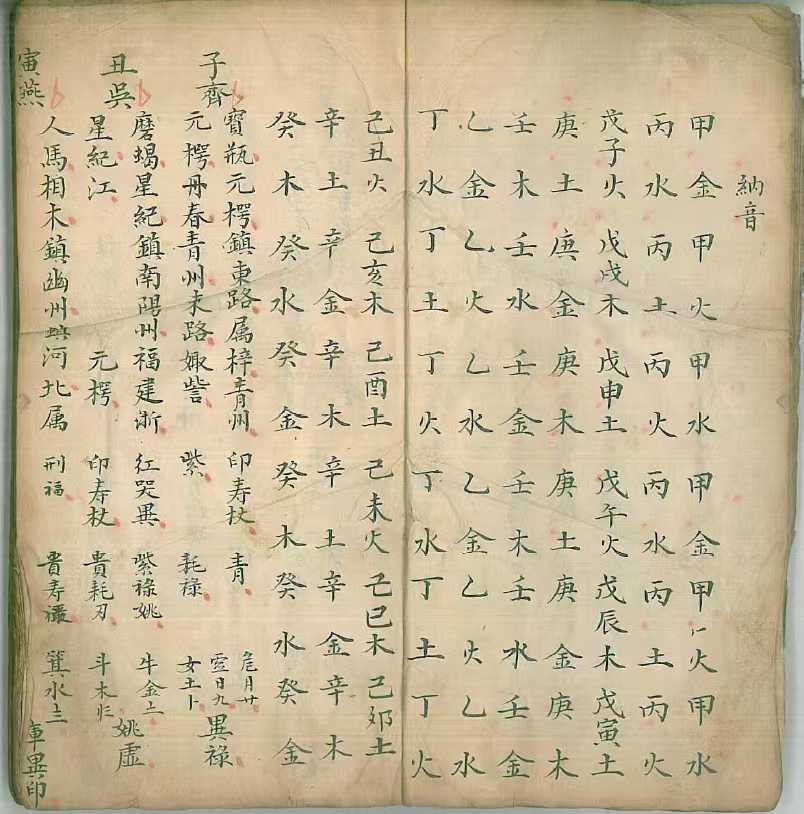 納音
甲金甲火甲水甲金甲火甲水
丙水丙土丙火丙水丙土丙火
戊子火 戊戌木 戊申土 戊午火 戊辰木 戊寅土
庚土庚金庚木庚土庚金庚木
壬木壬水壬金壬木壬水壬金
乙金乙火乙水乙金乙火乙水
丁水丁土丁火丁水丁土丁火
己丑火 己亥木 己酉土 己未火 己巳木 己卯土
辛土辛金辛木辛土辛金辛木
癸木癸水癸金癸木癸水癸金
子齊
寶瓶元楞鎮東路属梓青州 印寿杖 青 危月廿
虚日九
元楞丹春青州末路娵訾 紫 耗禄 女土卜
異禄
丑吳
磨蝎星紀鎮南陽州福建浙 红哭異 紫禄姚 牛金
星紀江 元楞 印寿杖 貴耗刃 斗木
姚虛
寅燕
人馬相木鎮幽州河北属 刑福 貴寿 箕水
車異印